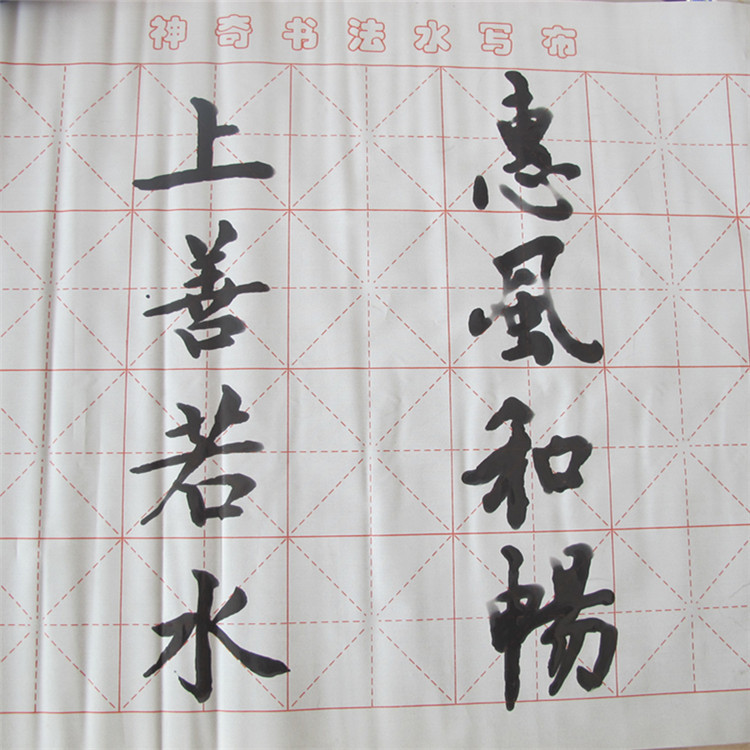 神奇书法水写布
惠風和暢
上善若水